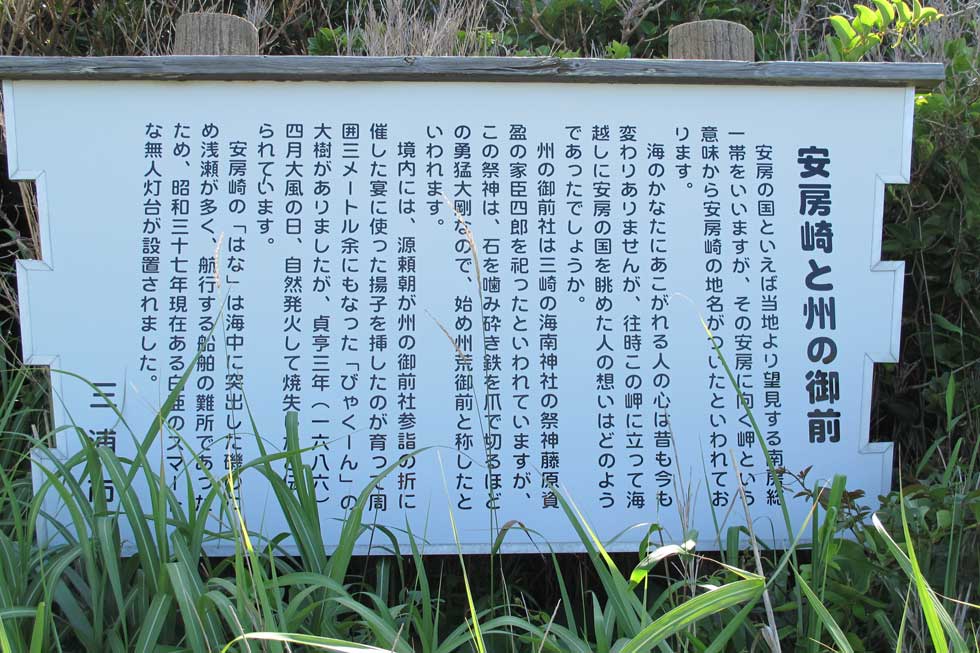 安房崎と州の御前
安房の国といえば当地より望見する南房総
一帯をいいますが、その安房に向く岬という
意味から安房崎の地名がついたといわれてお
ります。
海のかなたにあこがれる人の心は昔も今も
変わりありませんが、往時この岬に立って海
越しに安房の国を眺めた人の想いはどのよう
であったでしょうか。
州の御前社は三崎の海南神社の祭神藤原資
盈の家臣四郎を祀ったといわれていますが、
この祭神は、石を噛み砕き鉄を爪で切るほど
の勇猛大剛なので、始め州荒御前と称したと
いわれます。
境内には、源頼朝が州の御前社参詣の折に
催した宴に使った揚子を挿したのが育って周
囲三メートル余にもなった「びゃくーん」の
大樹がありましたが、貞享三年(一六八六)
四月大風の日、自然発火して焼失
られています。
安房崎の「はな」は海中に突出した磯
め浅瀬が多く、航行する船舶の難所であった
ため、昭和三十七年現在ある白亜のスマー
な無人灯台が設置されました。
三浦市